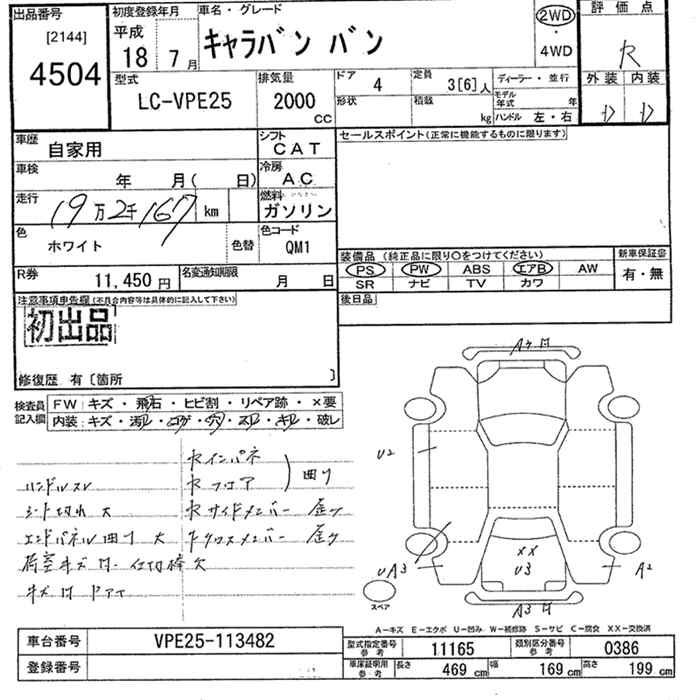 出品番号
[2144]
4504
初度登録年月
平成
18 7月
車名・グレード
キャラバン バン
2WD
・
4WD
評価点
R
型式
LC-VPE25
排気量
2000
CC
ドア
4
定員
3[6]人
形状
積載
kg
ディーラー・並行
モデル年式
年
ハンドル 左・右
外装 内装
D D
車歴
自家用
シフト
CAT
セールスポイント(正常に機能するものに限ります)
車検
年 月( 日)
冷房
AC
走行
19万2千167 km
燃料
ガソリン
色
ホワイト
色替
色コード
QM1
装備品(純正品に限り○をつけてください)
PS PW ABS エアB AW
SR ナビ TV カワ
新車保証書
有・無
R券
11,450円
名変通知期限
月 日
後日品
注意事項申告欄(不具合内容等は具体的に記入して下さい)
初出品
修復歴 有〔箇所 〕
検査員
記入欄
FW:キズ・飛石・ヒビ割・リペア跡・×要
内装:キズ・汚レ・コゲ・穴・スレ・キレ・破レ
R インパネ
R フロア
曲り
ハンドルスレ
シート切れ大
R サイドメンバー 歪ツ
エンドパネル曲り 大
R クロスメンバー 歪ツ
荷室キズ有・仕切棒欠
キズ有 ドア
U2
UA3
XX
U3
A2
A3
スペア
A−キズ E−エクボ U−凹み W−補修跡 S−サビ C−腐食 XX−交換済
車台番号
VPE25-113482
登録番号
型式指定番号
参考
11165
類別区分番号
参考
0386
車庫証明用
参考
長さ 469 cm
幅 169 cm
高さ 199 cm